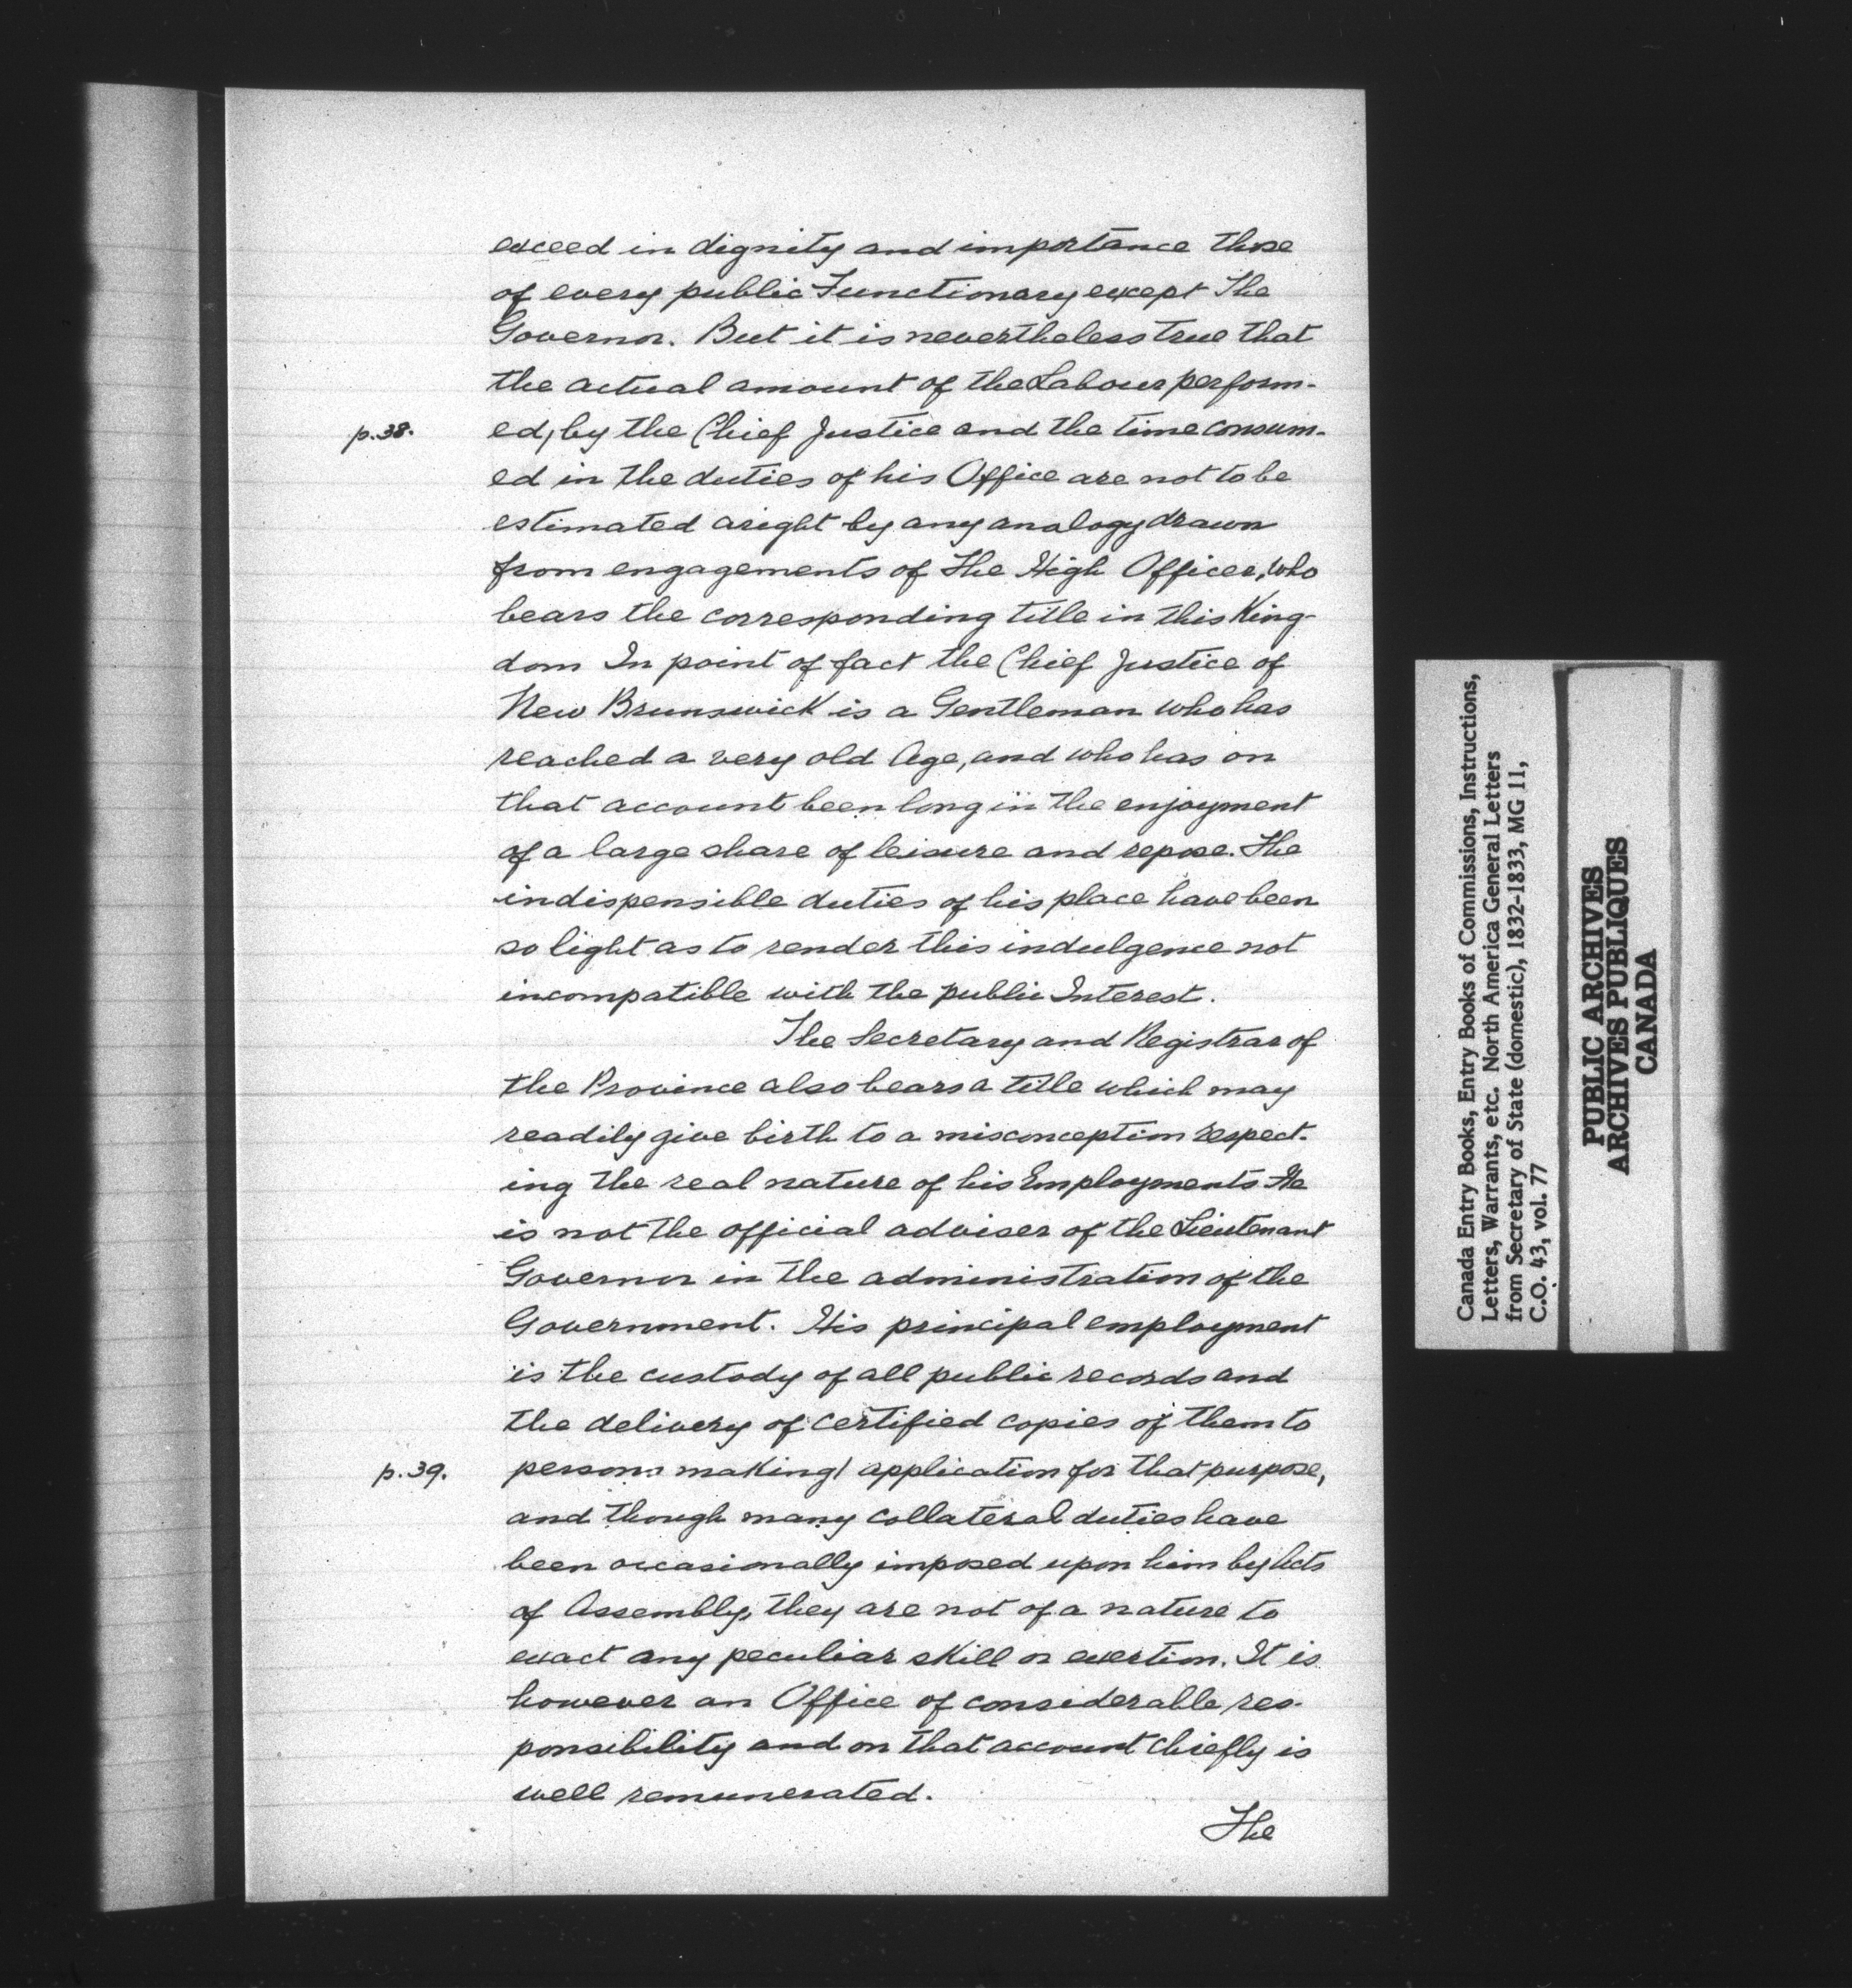 exceed in dignity and importance those
of every public Functionary except The
Governor. But it is nevertheless true that
the actual amount of the Labour perform-
p.38. ed, by the Chief Justice and the time consum-
ed in the duties of his Office are not to be
estimated aright by any analogy drawn
from engagements of the High Officer, who
bears the corresponding title in this King-
dom In point of fact the Chief Justice of
New Brunswick is a Gentleman who has
reached a very old Age, and who has on
that account been long in the enjoyment
of a large share of leisure and repose. The
indispensible duties of his place have been
so light as to render this indulgence not
incompatible with the public Interest.
The Secretary and Registrar of
the Province also bears a title which may
readily give birth to a misconception respect-
ing the real nature of his Employments He
is not the official adviser of the Lieutenant
Governor in the administration of the
Government. His principal employment
is the custody of all public records and
the delivery of certified copies of them to
p.39. persons making/ application for that purpose,
and though many collateral duties have
been occasionally imposed upon him by Acts
of Assembly, they are not of a nature to
exact any peculiar skill or exertion. It is
however an Office of considerable res-
ponsibility and on that account chiefly is
well remunerated.
The
Canada Entry Books, Entry Books of Commissions, Instructions,
Letters, Warrants, etc. North America General Letters
from Secretary of State (domestic), 1832-1833, MG 11,
C.O. 43, vol. 77
PUBLIC ARCHIVES
ARCHIVES PUBLIQUES
CANADA